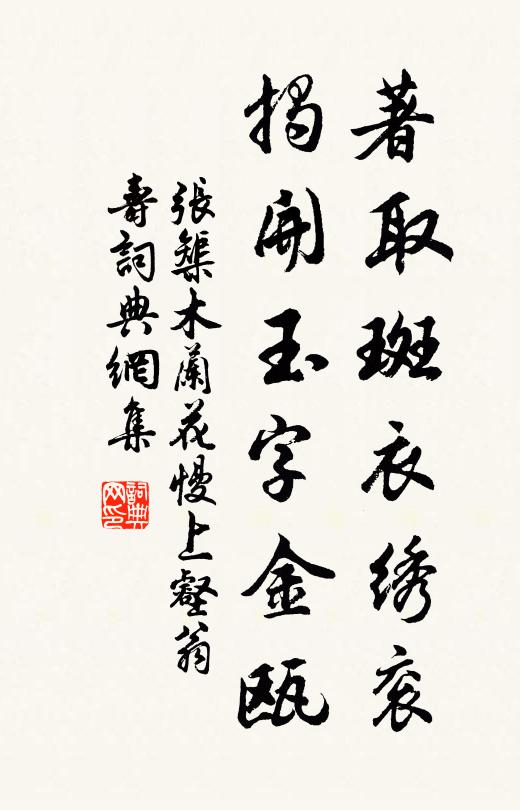 著取斑衣绣衮
揭開玉字金瓯
張榘木蘭花慢上壑翁
壽詞典網集
詞典网印